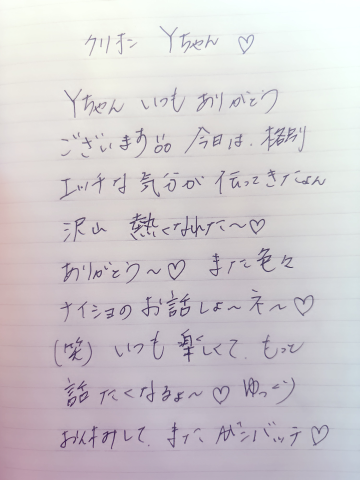 クリオン Yちゃん ♡
Yちゃん いつも ありがとう
ございます 今日は、格別
エッチな 気分が 伝ってきたよん
沢山 熱くなれた〜♡
ありがとう〜♡ また 色々
ナイショの お話しよ〜ネ〜♡
(笑) いつも 楽しくて、もって
話したくなるよ〜♡ ゆっくり
お休みして、また ガンバッテ♡